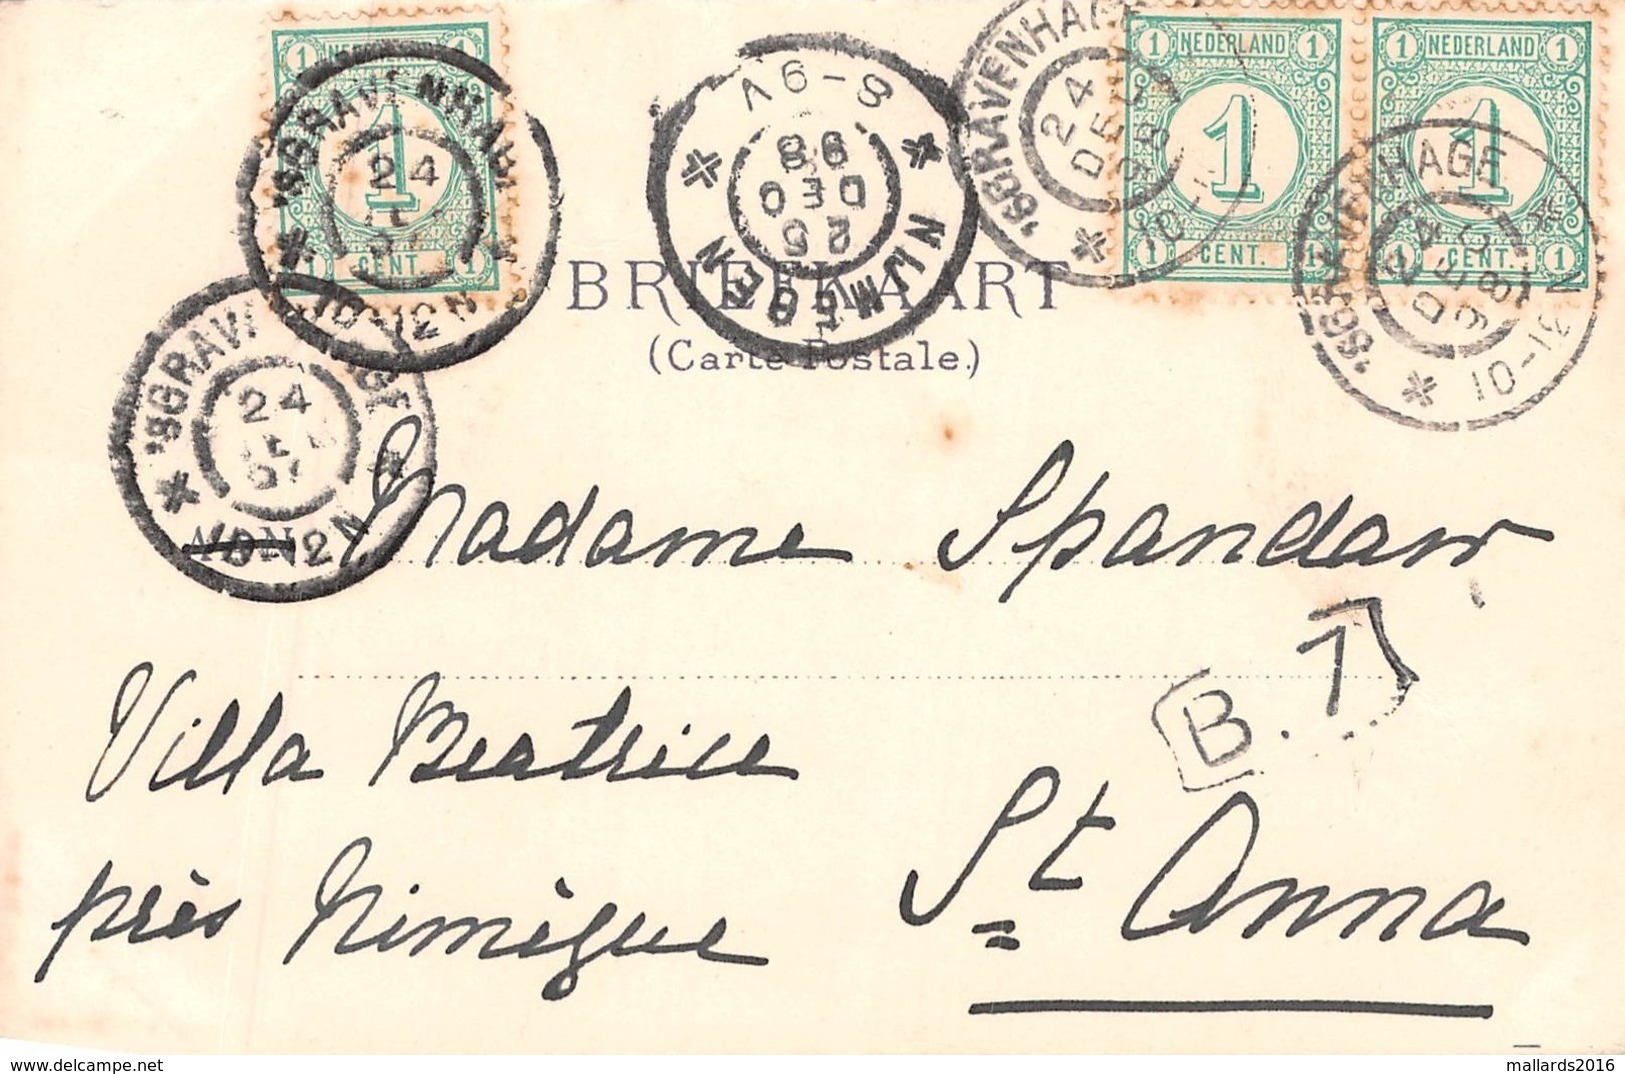 1 NEDERLAND 1
1
1 CENT. 1
1 NEDERLAND 1
1
1 CENT. 1
1 NEDERLAND 1
1
1 CENT. 1
'SGRAVENHAGE
24
10-12N
NIJMEGEN
25 DEC 98
8-9V
'SGRAVENHAGE
24 DEC 98
'SGRAVENHAGE
24 DEC 98
10-12
BRIEFKAART
(Carte Postale.)
'SGRAV
24
10-12N
AAN
Madame Spandaw
B. 7
Villa Beatrice
St Anna
près Nimègue
mallards2016